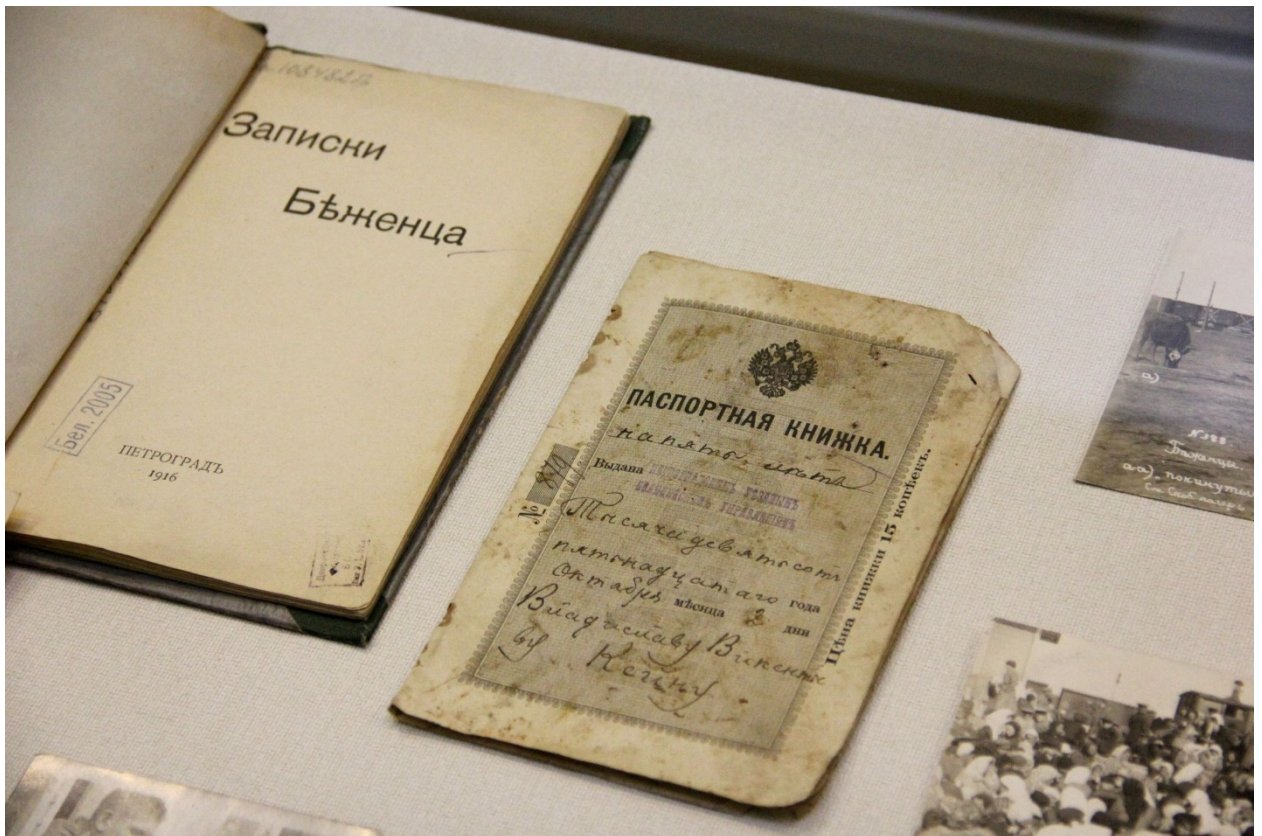 Записки
Бѣженца
Бел. 2005
ПЕТРОГРАДЪ
1916
ПАСПОРТНАЯ КНИЖКА.
на пять лѣтъ
Выдана
№ 879
Тысяча девятьсотъ
пятнадцатаго года
Октября мѣсяца 3 дни
Владиславу Викентье
ву
Цѣна книжки 15 копѣекъ.
№ 388.
Бѣженцы.
а-а). покинутые